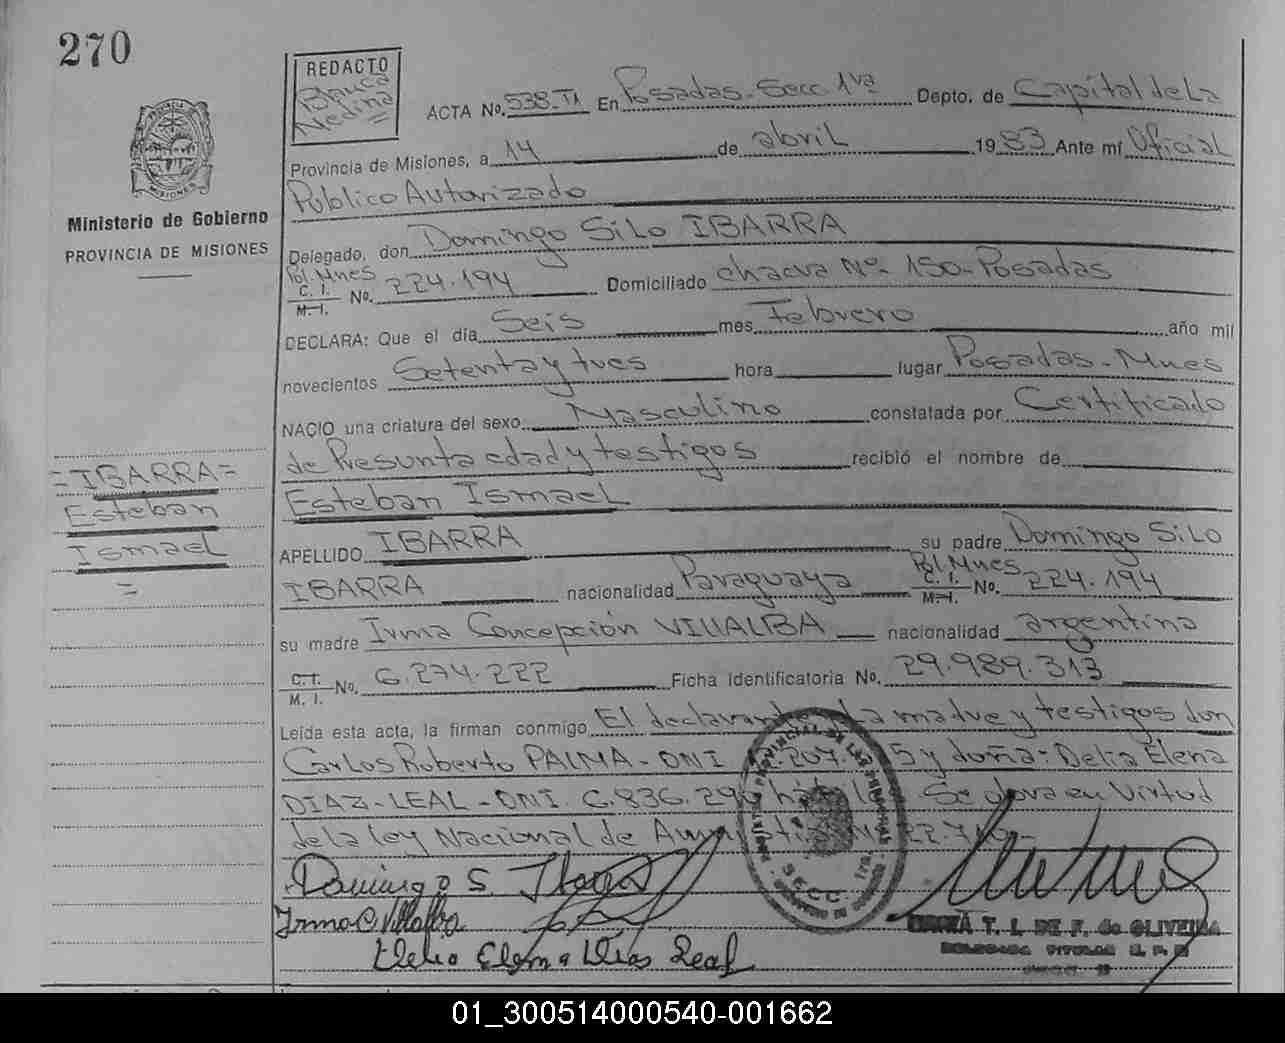 270
REDACTO
Blanca
Medina
ACTA No. 538-T1 En Posadas-Secc 1ra Depto. de Capital de La
Provincia de Misiones, a 14 de abril 1983 Ante mí Oficial
Público Autorizado
Delegado, don Domingo SiLo IBARRA
Pol. Mnes
C. I.
M. I. No. 224.194 Domiciliado chacra Nº 150-Posadas
DECLARA: Que el día Seis mes Febrero año mil
novecientos Setenta y tres hora lugar Posadas-Mnes
NACIO una criatura del sexo Masculino constatada por Certificado
de Presunta edad y testigos recibió el nombre de
Esteban Ismael
APELLIDO IBARRA su padre Domingo SiLo
IBARRA nacionalidad Paraguaya Pol. Mnes C. I. M. I. No. 224.194
su madre Irma Concepción VILLALBA nacionalidad argentina
C. I. M. I. No. 6.274.222 Ficha Identificatoria No. 29.989.313
Leída esta acta, la firman conmigo El declarante, La madre y testigos don
Carlos Roberto PALMA-DNI 207. 5 y doña: Delia Elena
DIAZ-LEAL-DNI. 6.836.29 Se labra en Virtud
de la Ley Nacional de Amnistía
Domingo S. Ibarra
Irma C Villalba
Delia Elena Dias Leal
T. I. DE F. de OLIVEIRA
DELEGADA TITULAR R. P. P.
Ministerio de Gobierno
PROVINCIA DE MISIONES
=IBARRA=
Esteban
Ismael
=
SECC. 1ra.
01_300514000540-001662